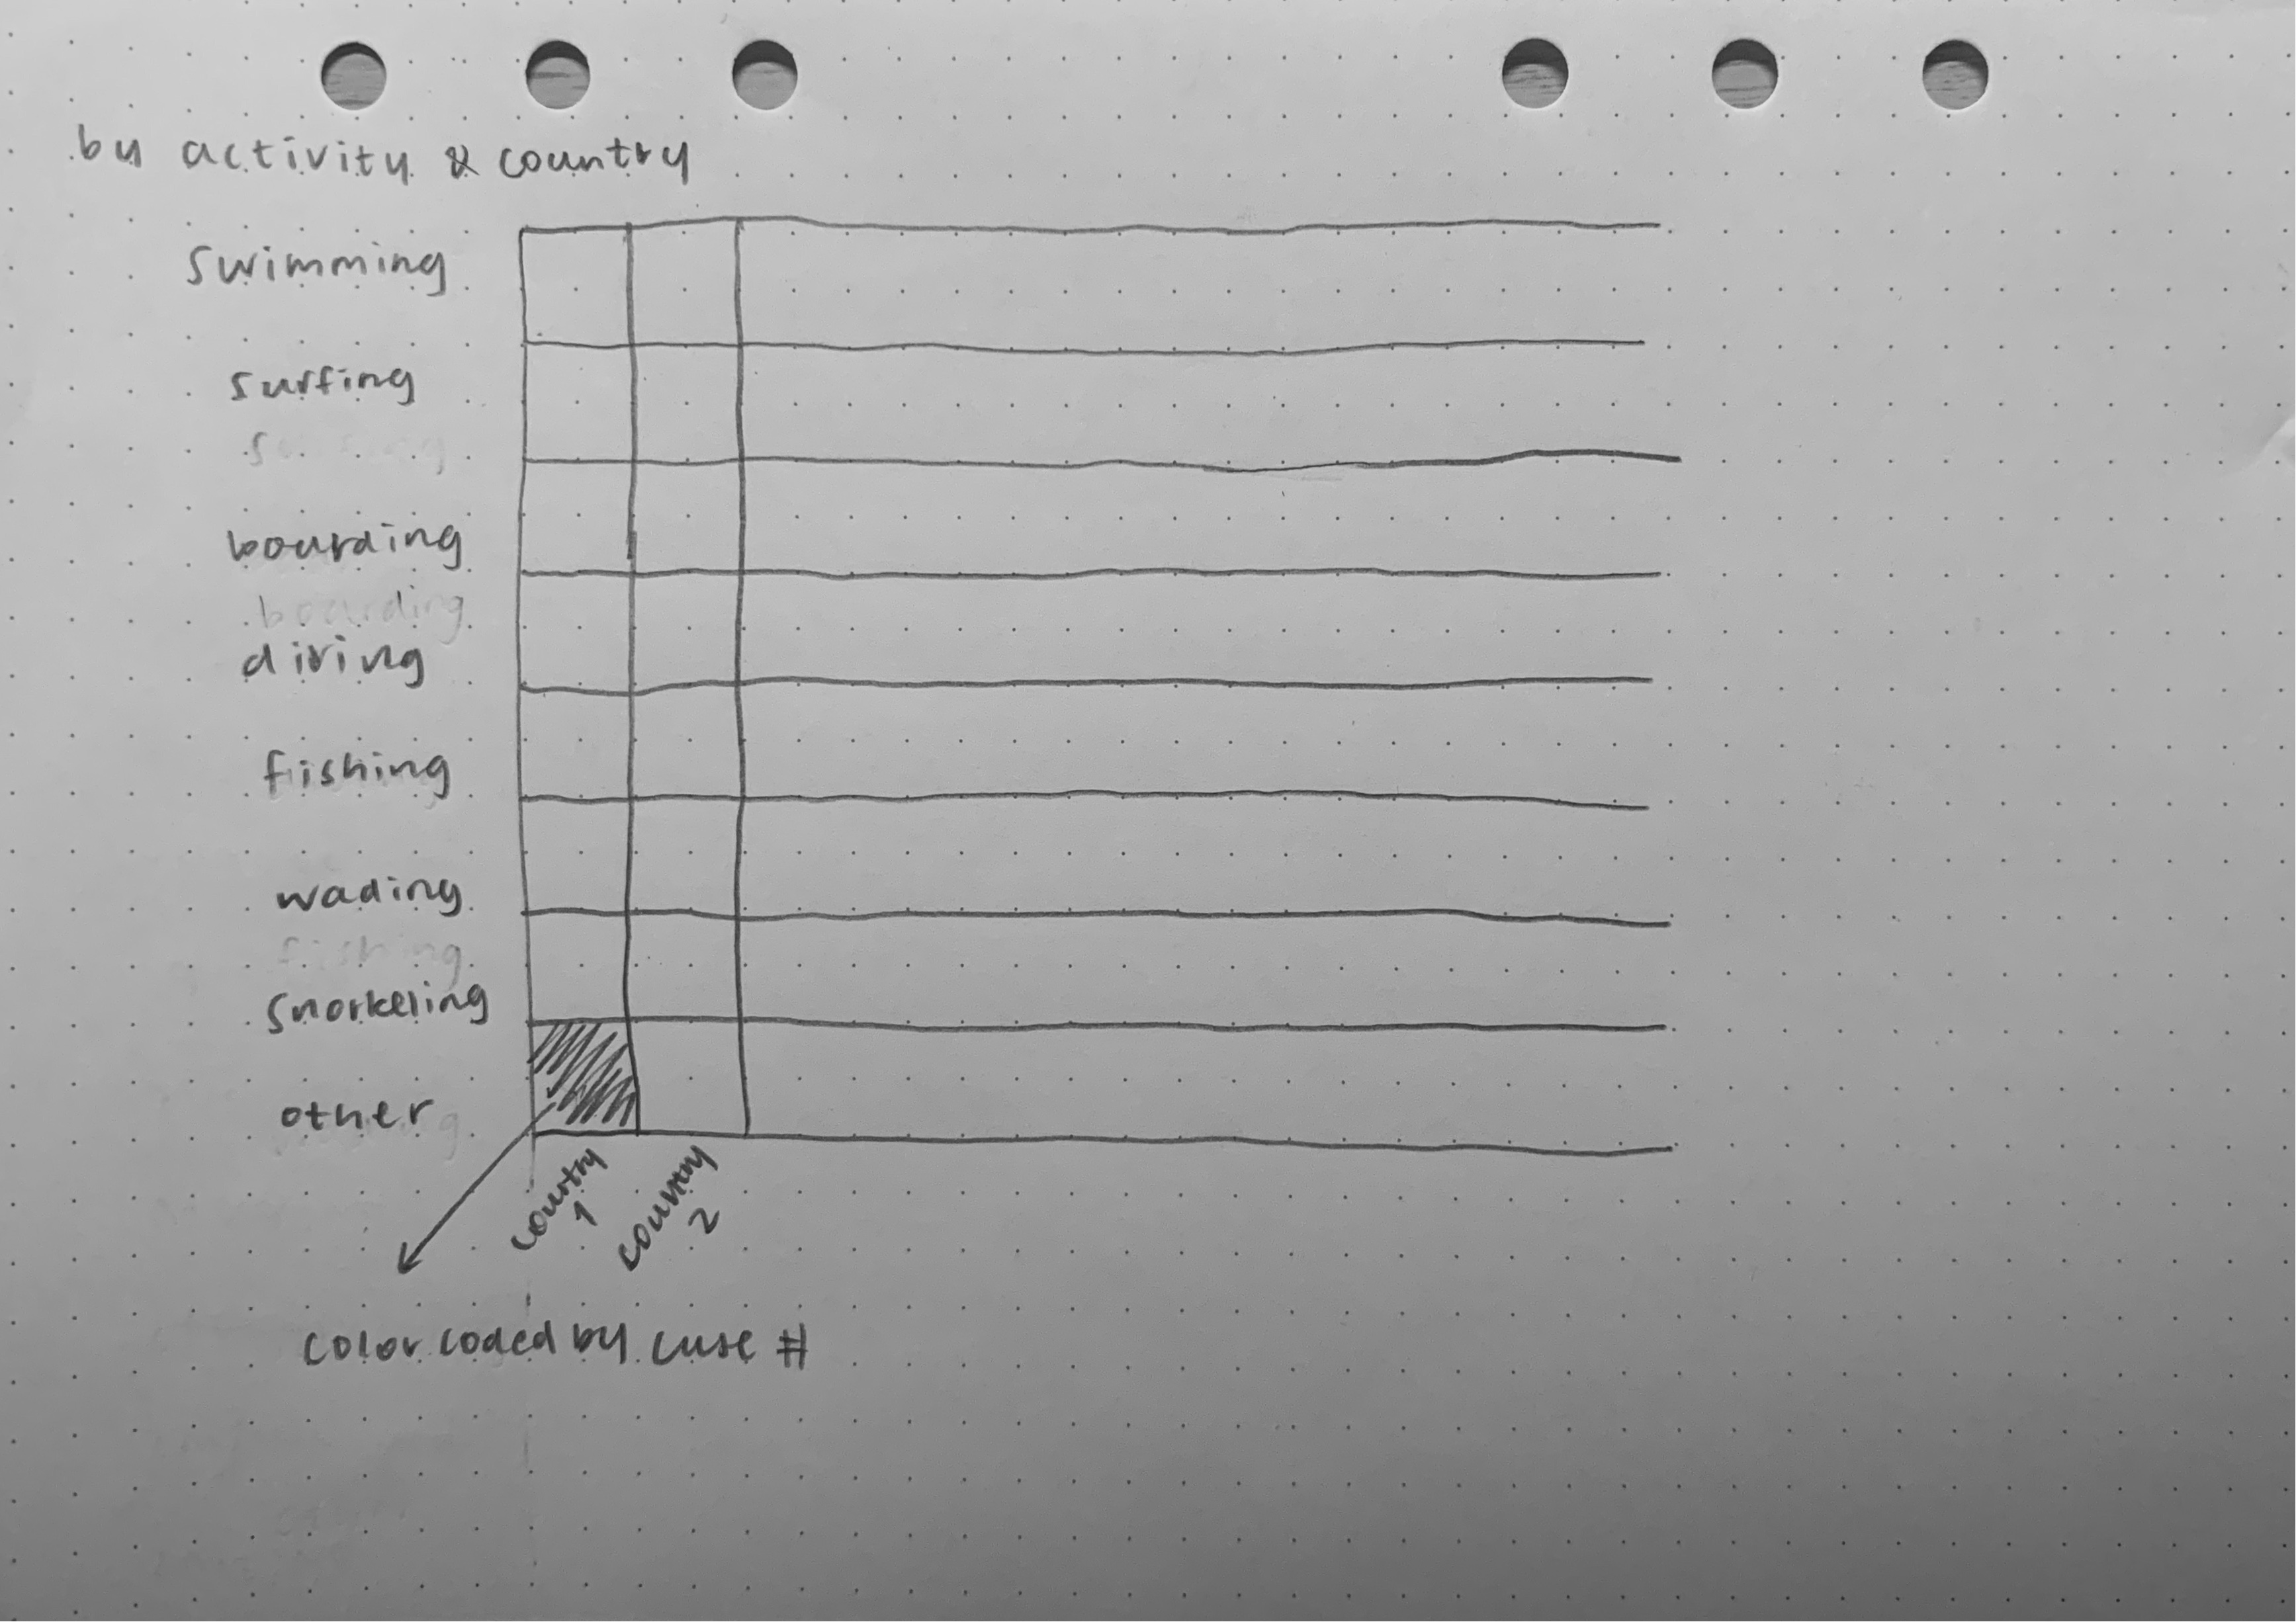 by activity & country
swimming
surfing
boarding
boarding
diving
fishing
wading
fishing
snorkeling
other
country
1
country
2
color coded by case #